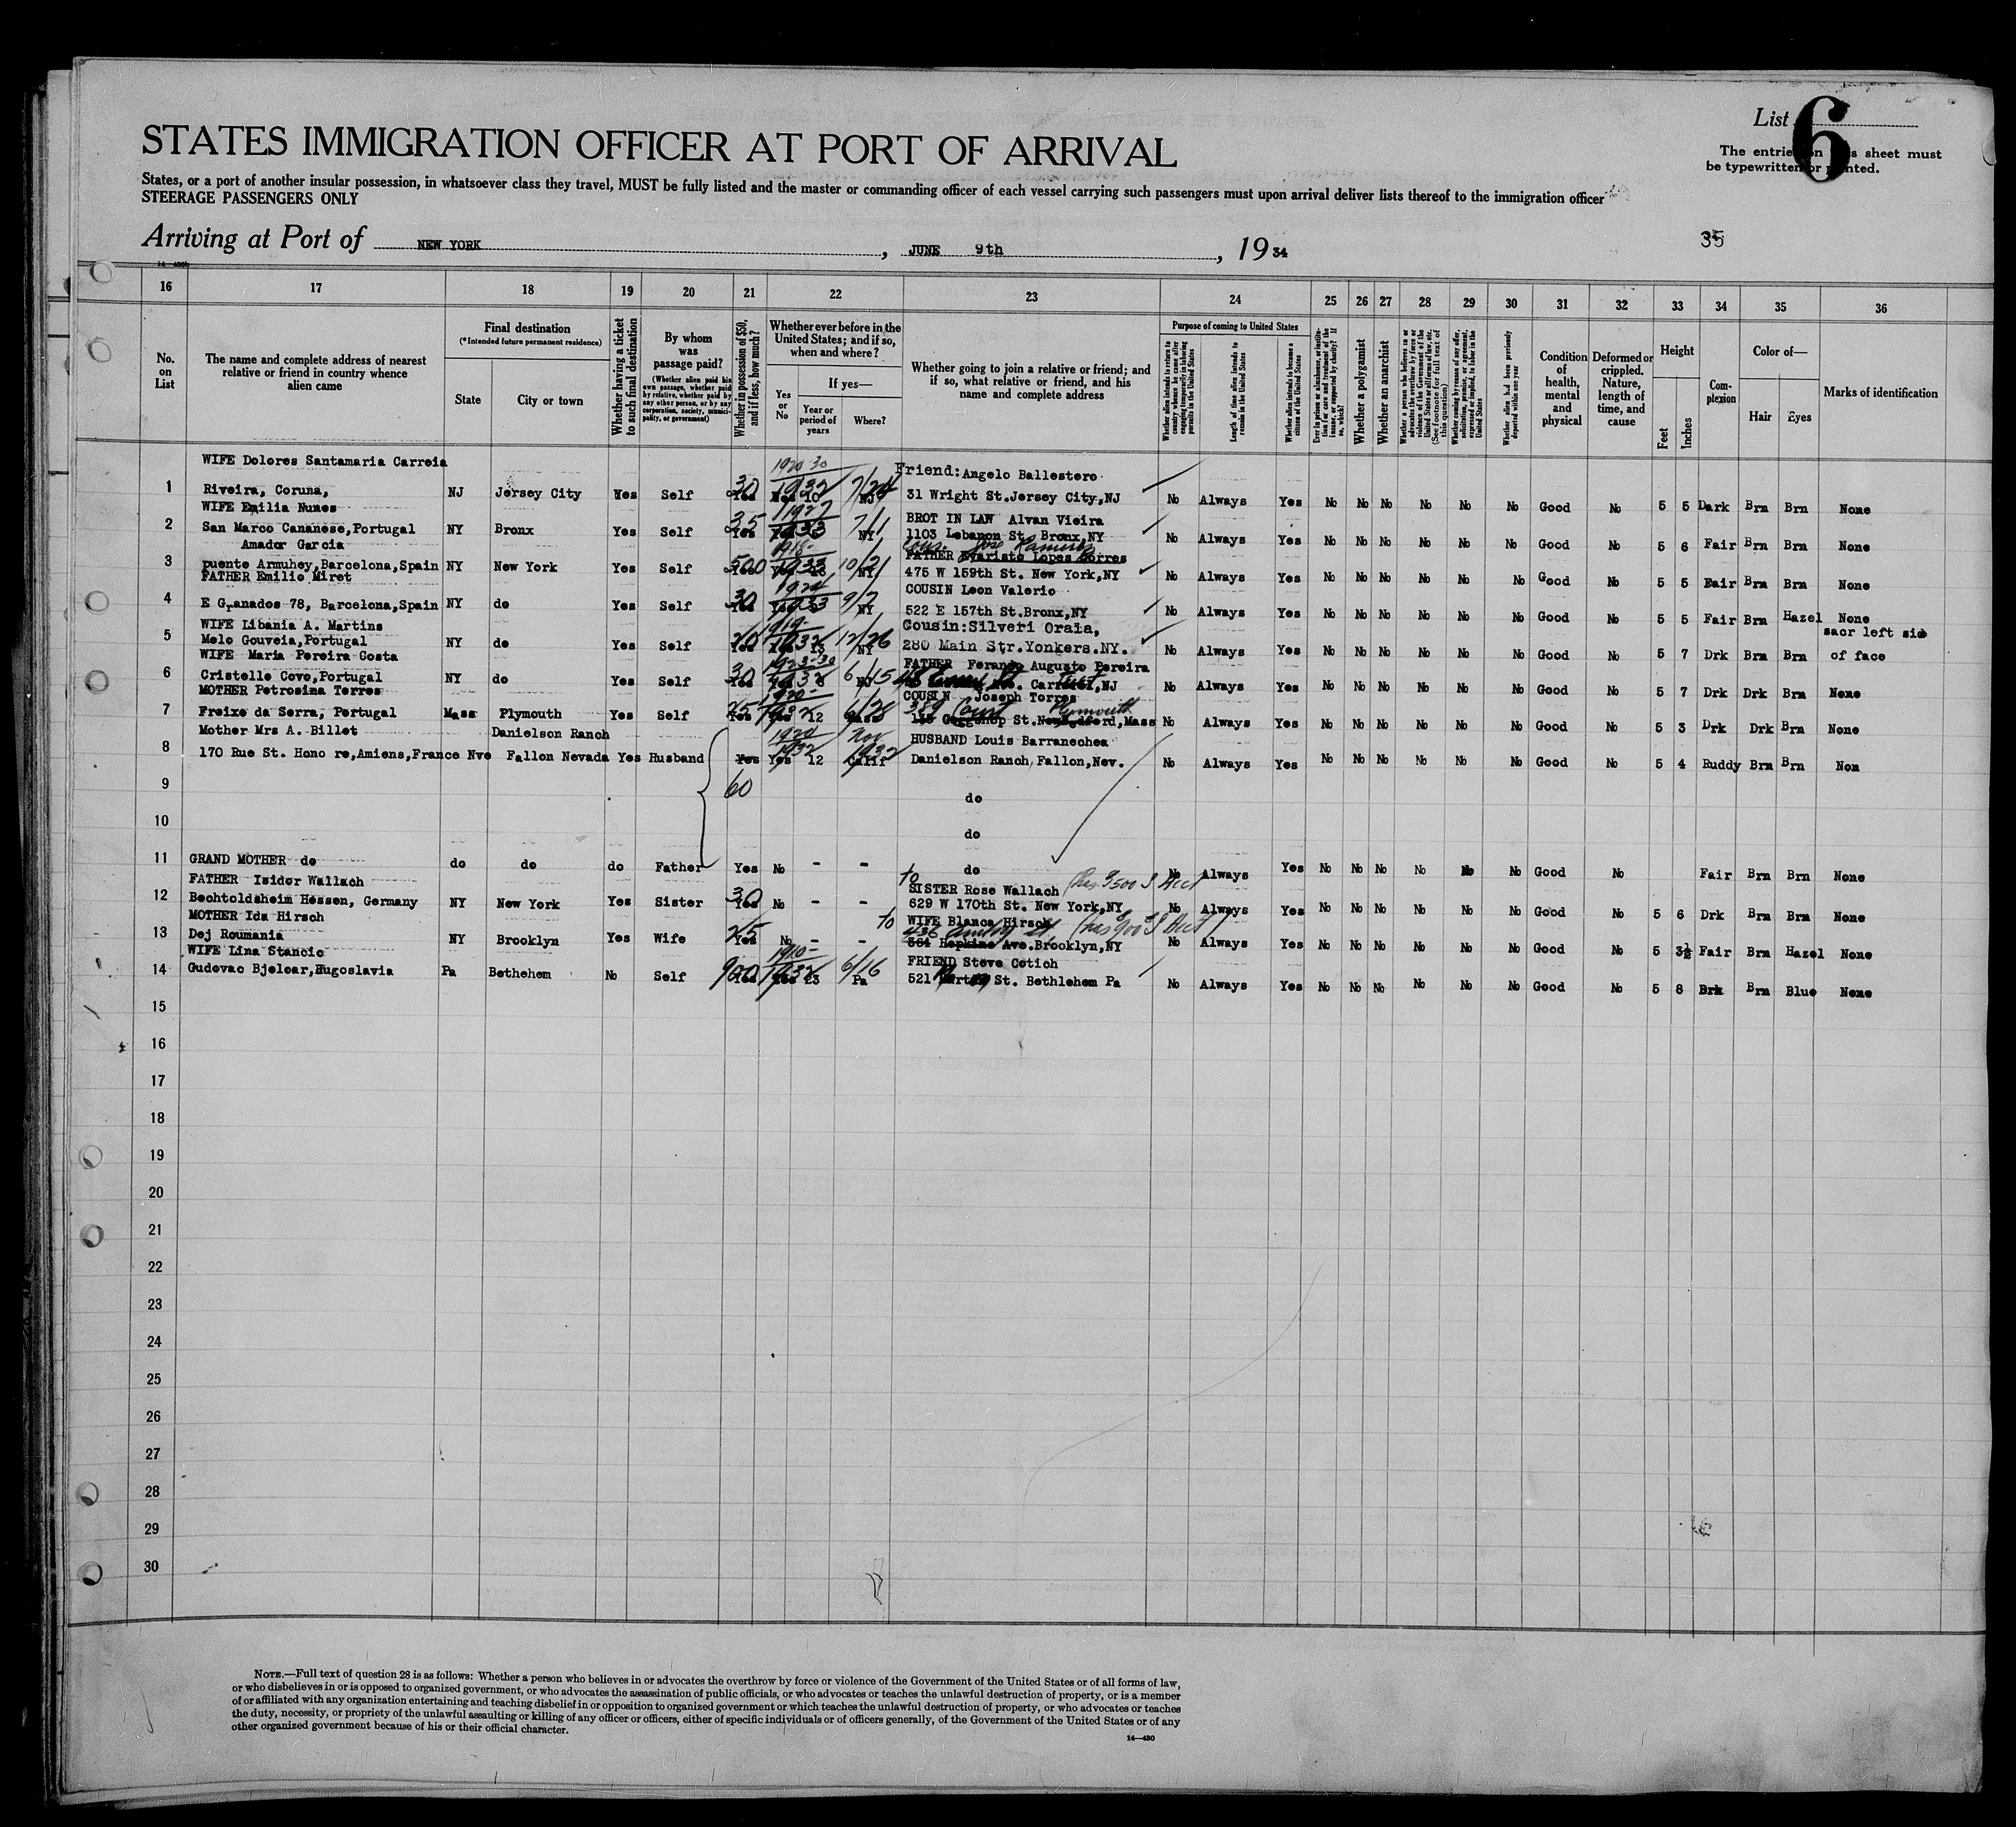 List 6
The entries on this sheet must
be typewritten or printed.
STATES IMMIGRATION OFFICER AT PORT OF ARRIVAL
States, or a port of another insular possession, in whatsoever class they travel, MUST be fully listed and the master or commanding officer of each vessel carrying such passengers must upon arrival deliver lists thereof to the immigration officer
STEERAGE PASSENGERS ONLY
Arriving at Port of NEW YORK, JUNE 9th, 1934
35
16 17 18 19 20 21 22 23 24 25 26 27 28 29 30 31 32 33 34 35 36
No. on List
The name and complete address of nearest relative or friend in country whence alien came
Final destination
(*Intended future permanent residence)
State
City or town
Whether having a ticket to such final destination
By whom was passage paid?
(Whether alien paid his own passage, whether paid by relative, whether paid by any other person, or by any corporation, society, municipality, or government)
Whether in possession of $50, and if less, how much?
Whether ever before in the United States; and if so, when and where?
Yes or No
If yes—
Year or period of years
Where?
Whether going to join a relative or friend; and if so, what relative or friend, and his name and complete address
Purpose of coming to United States
Whether alien intends to return to country whence he came after engaging temporarily in laboring pursuits in the United States
Length of time alien intends to remain in the United States
Whether alien intends to become a citizen of the United States
Ever in prison or almshouse, or institution for care and treatment of the insane, or supported by charity? If so, which?
Whether a polygamist
Whether an anarchist
Whether a person who believes in or advocates the overthrow by force or violence of the Government of the United States or all forms of law, etc. (See footnote for full text of this question)
Whether coming by reason of any offer, solicitation, promise, or agreement, expressed or implied, to labor in the United States
Whether alien had been previously deported within one year
Condition of health, mental and physical
Deformed or crippled. Nature, length of time, and cause
Height
Feet
Inches
Complexion
Color of—
Hair
Eyes
Marks of identification
WIFE Dolores Santamaria Carreia 1920-30 Friend: Angelo Ballestero
1 Riveira, Coruna, NJ Jersey City Yes Self 30 Yes 1932 10 7/24 NJ 31 Wright St. Jersey City, NJ No Always Yes No No No No No No Good No 5 5 Dark Brn Brn None
WIFE Emilia Nunes 1927 BROT IN LAW Alvan Vieira
2 San Marco Cananese, Portugal NY Bronx Yes Self 35 Yes 1933 7/1 NY 1103 Lebanon St. Bronx, NY No Always Yes No No No No No No Good No 5 6 Fair Brn Brn None
Amador Garcia 1918- Cous. Jose Ramirez FATHER Evaristo Lopes Borres
3 puente Armuhey, Barcelona, Spain NY New York Yes Self 500 Yes 1933 10/21 NY 475 W 159th St. New York, NY No Always Yes No No No No No No Good No 5 5 Fair Brn Brn None
FATHER Emilio Miret 1924 COUSIN Leon Valerio
4 E Granados 78, Barcelona, Spain NY do Yes Self 30 Yes 1933 9/7 NY 522 E 157th St. Bronx, NY No Always Yes No No No No No No Good No 5 5 Fair Brn Hazel None
WIFE Libania A. Martins 1919- Cousin: Silveri Orala, sacr left side
5 Melo Gouveia, Portugal NY do Yes Self 20 Yes 1932 13 12/26 NY 280 Main Str. Yonkers. NY. No Always Yes No No No No No No Good No 5 7 Drk Brn Brn of face
WIFE Maria Pereira Costa 1923-30 FATHER Ferando Augusto Pereira
6 Cristelle Covo, Portugal NY do Yes Self 30 Yes 1932 8 6/15 NJ Carteret, NJ No Always Yes No No No No No No Good No 5 7 Drk Drk Brn None
MOTHER Petrosina Torres 1920- COUSIN Joseph Torres
7 Freixe da Serra, Portugal Mass Plymouth Yes Self 25 Yes 1932 12 6/28 Mass 389 Court Plymouth St. New Bedford, Mass No Always Yes No No No No No No Good No 5 3 Drk Drk Brn None
Mother Mrs A. Billet Danielson Ranch 1920 Nov HUSBAND Louis Barranechea
8 170 Rue St. Hono re, Amiens, France Nve Fallon Nevada Yes Husband Yes Yes 1932 12 1932 Calif Danielson Ranch, Fallon, Nev. No Always Yes No No No No No No Good No 5 4 Ruddy Brn Brn Non
9 60 do
10 do
11 GRAND MOTHER do do do do Father Yes No - - do No Always Yes No No No No No No Good No Fair Brn Brn None
FATHER Isidor Wallach to SISTER Rose Wallach (has $500 S Acct
12 Bechtoldsheim Hessen, Germany NY New York Yes Sister 30 Yes No - - 629 W 170th St. New York, NY No Always Yes No No No No No No Good No 5 6 Drk Brn Brn None
MOTHER Ida Hirsch to WIFE Blanca Hirsch (has $900 S Acct)
13 Dej Roumania NY Brooklyn Yes Wife 25 Yes No - - 364 Hopkins Ave. Brooklyn, NY No Always Yes No No No No No No Good No 5 3½ Fair Brn Hazel None
WIFE Lina Stancic 1910- FRIEND Steve Cotich
14 Gudovac Bjelcar, Hugoslavia Pa Bethehem No Self 900 Yes Yes 1932 23 6/16 Pa 521 St. Bethlehem Pa No Always Yes No No No No No No Good No 5 8 Drk Brn Blue None
15
16
17
18
19
20
21
22
23
24
25
26
27
28
29
30
NOTE.—Full text of question 28 is as follows: Whether a person who believes in or advocates the overthrow by force or violence of the Government of the United States or of all forms of law,
or who disbelieves in or is opposed to organized government, or who advocates the assassination of public officials, or who advocates or teaches the unlawful destruction of property, or is a member
of or affiliated with any organization entertaining and teaching disbelief in or opposition to organized government or which teaches the unlawful destruction of property, or who advocates or teaches
the duty, necessity, or propriety of the unlawful assaulting or killing of any officer or officers, either of specific individuals or of officers generally, of the Government of the United States or of any
other organized government because of his or their official character.
14—430